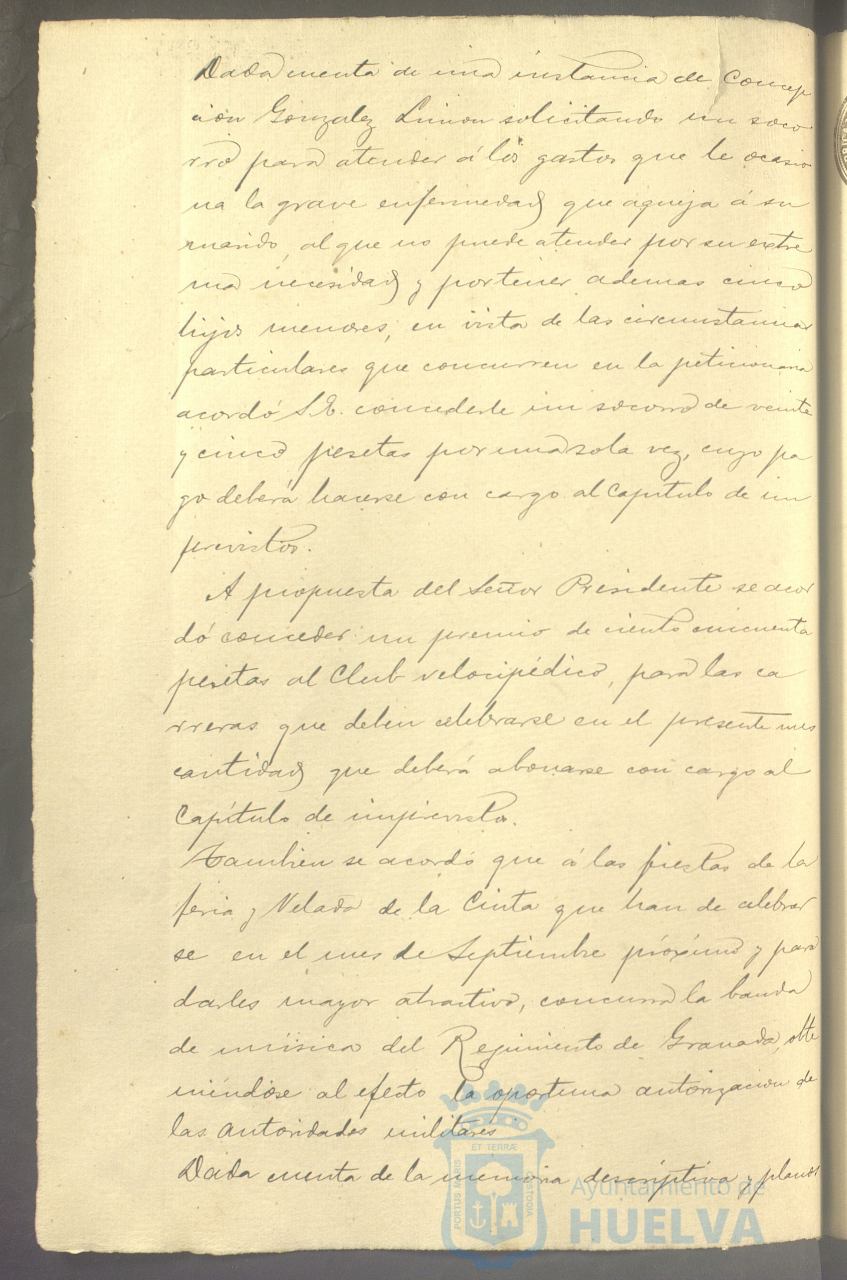 Dada cuenta de una instancia de Concep
cion Gonzalez Limon solicitando un soco
rro para atender á los gastos que le ocasio
na la grave enfermedad que aqueja á su
marido, al que no puede atender por su extre
ma necesidad y por tener ademas cinco
hijos menores, en vista de las circunstancias
particulares que concurren en la peticionaria
acordó S.E. concederle un socorro de veinte
y cinco pesetas por una sola vez, cuyo pa
go deberá hacerse con cargo al Capitulo de im
previstos.
A propuesta del Señor Presidente se acor
dó conceder un premio de ciento cincuenta
pesetas al Club velocipédico, para las ca
rreras que deben celebrarse en el presente mes
cantidad que deberá abonarse con cargo al
Capítulo de imprevisto.
Tambien se acordó que á las fiestas de la
feria y Velada de la Cinta que han de celebrar
se en el mes de Septiembre próximo y para
darles mayor atractivo, concurra la banda
de música del Regimiento de Granada, obte
niéndose al efecto la oportuna autorizacion de
las autoridades militares
Dada cuenta de la memoria descriptiva y planos
PORTUS MARIS ET TERRÆ CUSTODIA
Ayuntamiento de
HUELVA